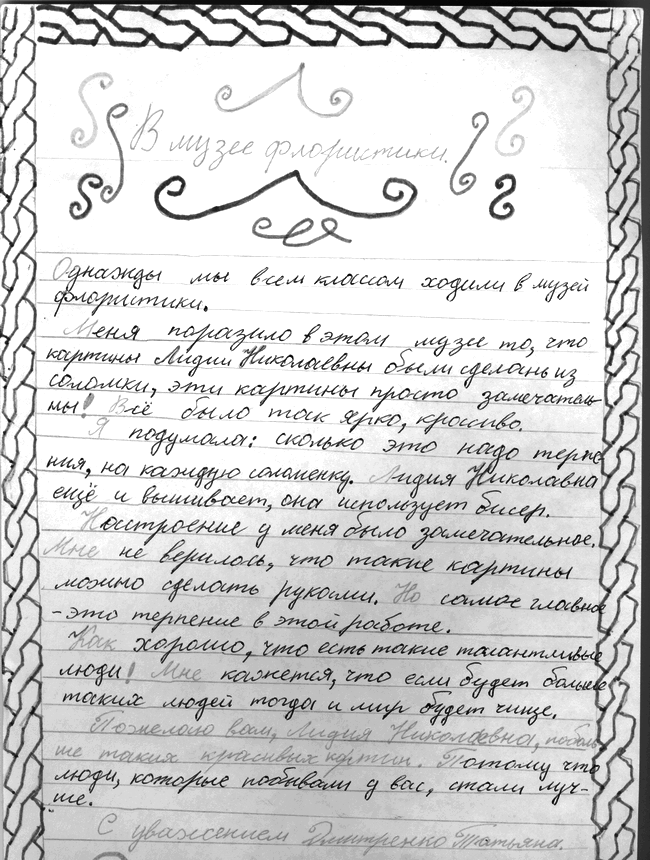 В музее флористики.
Однажды мы всем классом ходили в музей
флористики.
Меня поразило в этом музее то, что
картины Лидии Николаевны были сделаны из
соломки, эти картины просто замечатель-
ны! Всё было так ярко, красиво.
Я подумала: сколько это надо терпе
ния, на каждую соломенку. Лидия Николаевна
ещё и вышивает, она использует бисер.
Настроение у меня было замечательное.
Мне не верилось, что такие картины
можно сделать руками. Но самое главное
-это терпение в этой работе.
Как хорошо, что есть такие талантливые
люди! Мне кажется, что если будет больше
таких людей тогда и мир будет чище.
Пожелаю вам, Лидия Николаевна, поболь-
ше таких красивых картин. Потому что
люди, которые побывали у вас, стали луч-
ше.
С уважением Дмитренко Татьяна.